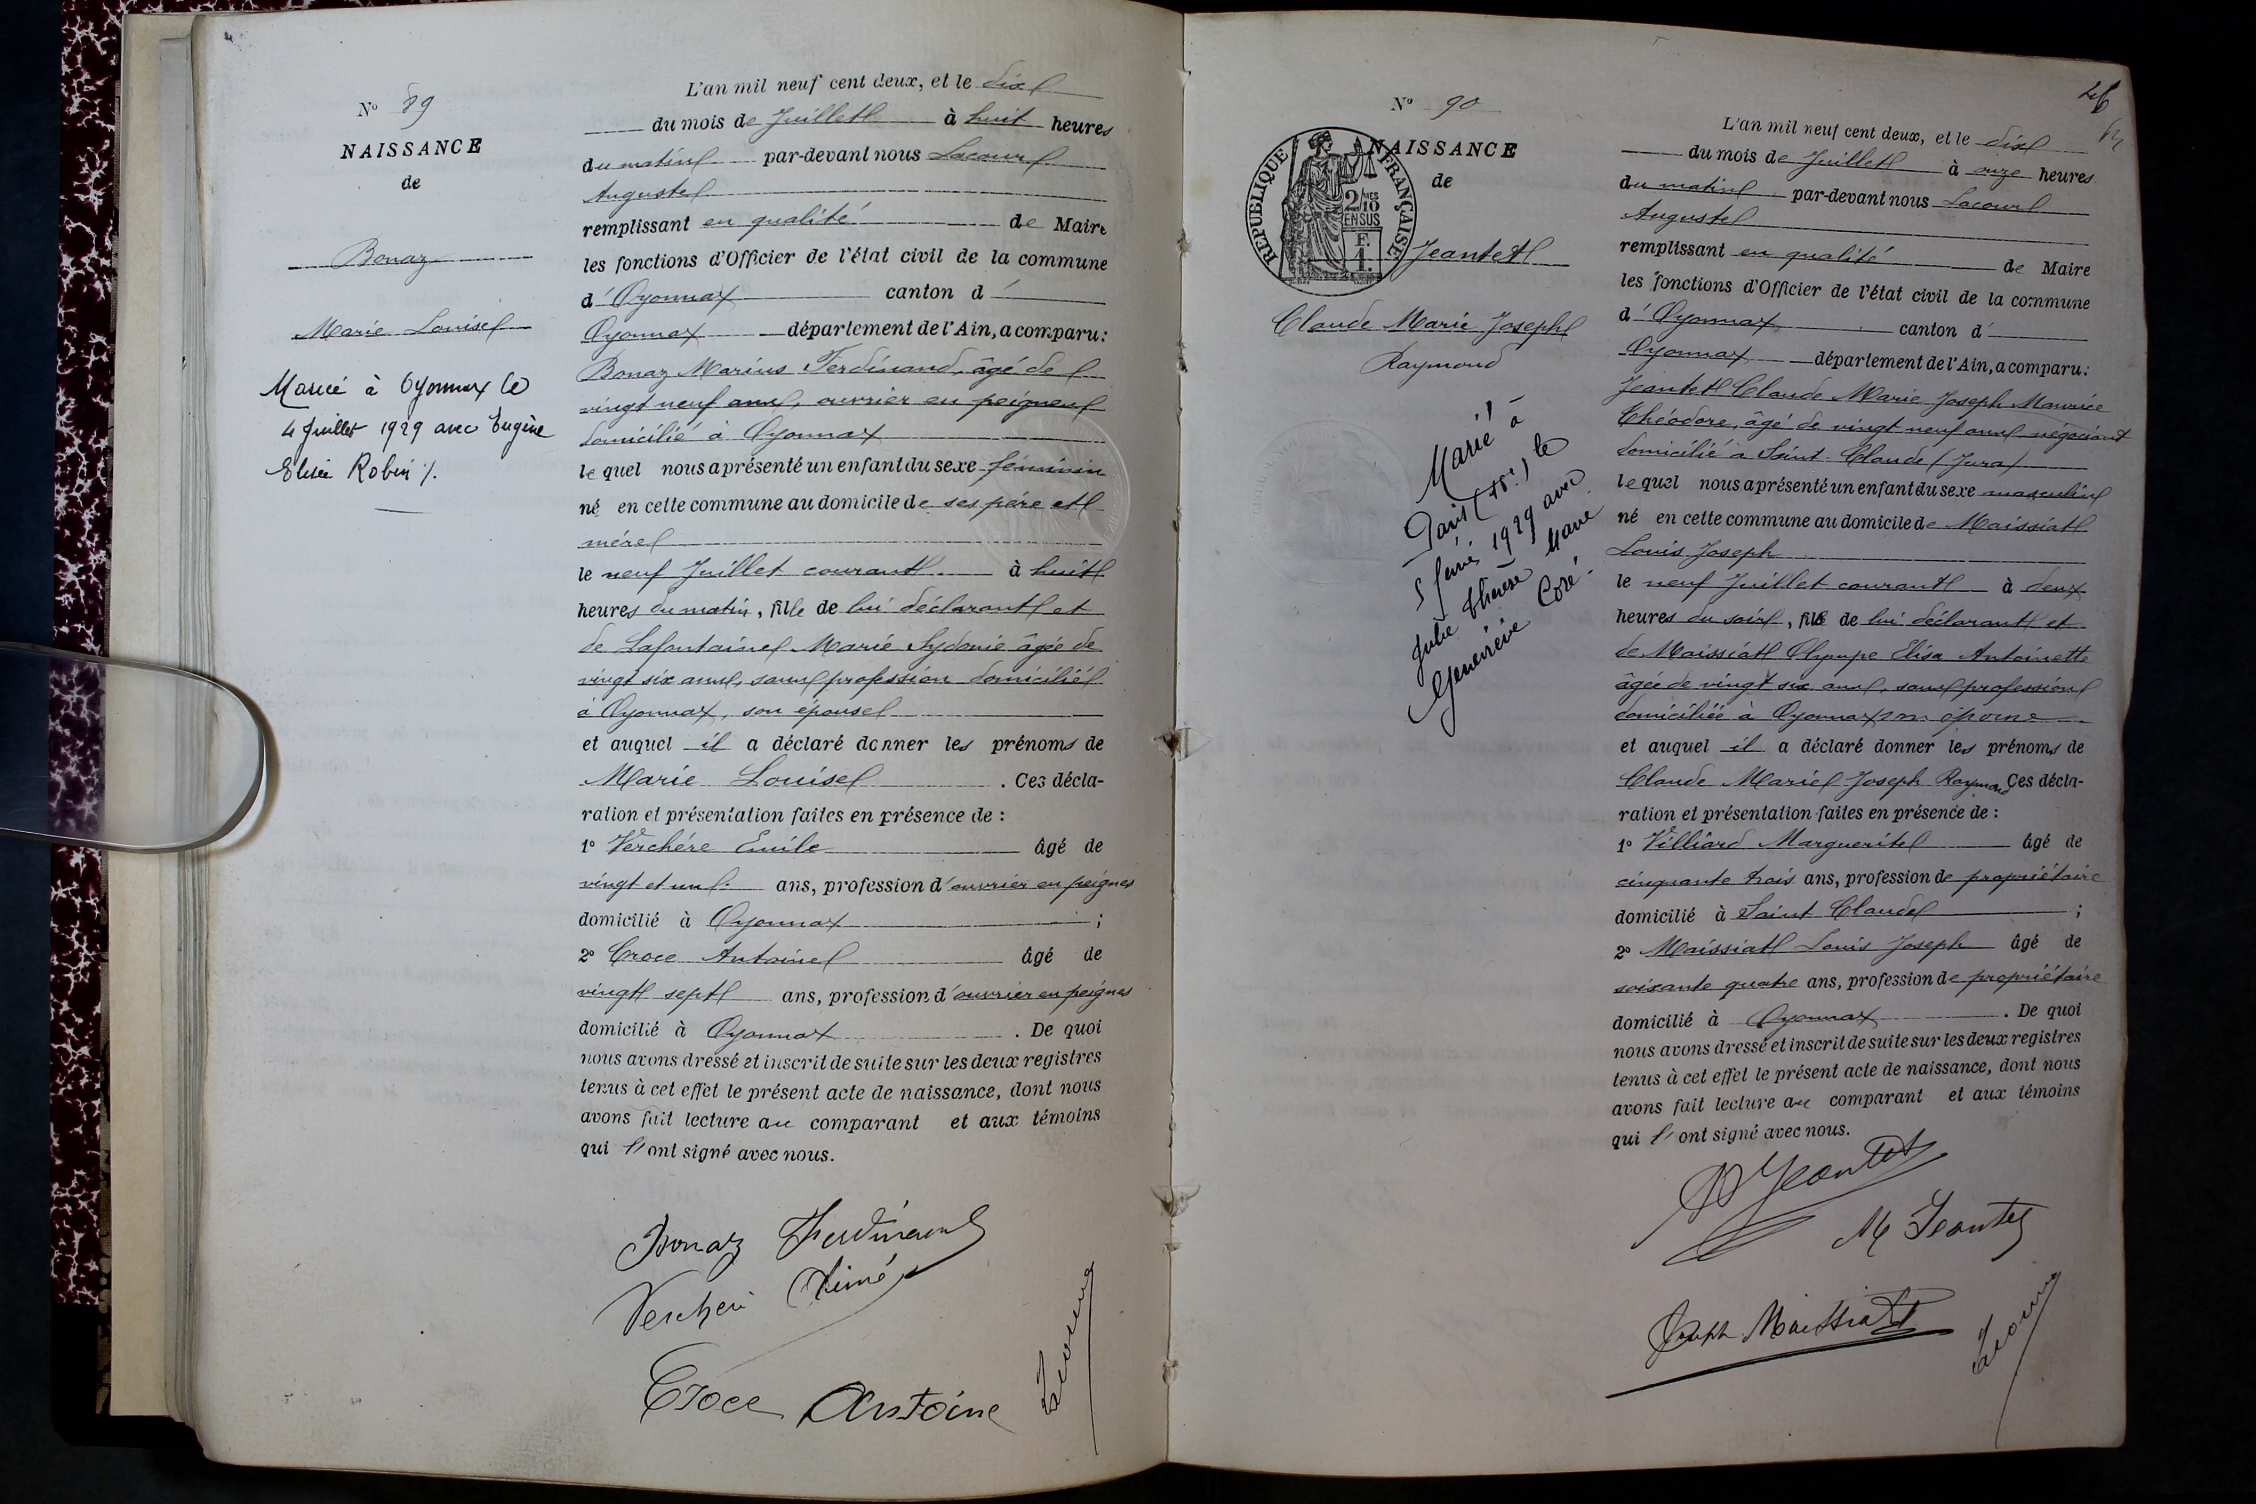 N° 89
NAISSANCE
de
Bonaz
Marie Louise
Mariée à Oyonnax le
4 Juillet 1929 avec Eugène
Elisée Robin /.
L'an mil neuf cent deux, et le dix
du mois de Juillet à huit heures
du matin par-devant nous Lacour
Auguste
remplissant en qualité de Maire
les fonctions d'Officier de l'état civil de la commune
d'Oyonnax canton d'
Oyonnax département de l'Ain, a comparu:
Bonaz Marius Ferdinand, âgé de
vingt neuf ans, ouvrier en peignes
domicilié à Oyonnax
lequel nous a présenté un enfant du sexe féminin
né en cette commune au domicile de ses père et
mère
le neuf Juillet courant à huit
heures du matin, fille de lui déclarant et
de Lafontaine Marie Sydonie âgée de
vingt six ans, sans profession domiciliée
à Oyonnax, son épouse
et auquel il a déclaré donner les prénoms de
Marie Louise. Ces décla-
ration et présentation faites en présence de :
1° Verchère Emile âgé de
vingt et un ans, profession d'ouvrier en peignes
domicilié à Oyonnax ;
2° Croce Antoine âgé de
vingt sept ans, profession d'ouvrier en peignes
domicilié à Oyonnax. De quoi
nous avons dressé et inscrit de suite sur les deux registres
tenus à cet effet le présent acte de naissance, dont nous
avons fait lecture au comparant et aux témoins
qui l'ont signé avec nous.
Bonaz Ferdinand
Aimé
Croce Antoine
Lacour
N° 90
NAISSANCE
de
RÉPUBLIQUE FRANÇAISE
2/10
EN SUS
F.
1.
Jeantet
Claude Marie Joseph
Raymond
Marié à
Paris (18e) le
1929 avec
Julie Thérèse Marie
Geneviève Coré.
26
L'an mil neuf cent deux, et le dix
du mois de Juillet à onze heures
du matin par-devant nous Lacour
Auguste
remplissant en qualité de Maire
les fonctions d'Officier de l'état civil de la commune
d'Oyonnax canton d'
Oyonnax département de l'Ain, a comparu:
Jeantet Claude Marie Joseph Maurice
Théodore, âgé de vingt neuf ans négociant
domicilié à Saint Claude (Jura)
lequel nous a présenté un enfant du sexe masculin
né en cette commune au domicile de Maissiat
Louis Joseph
le neuf Juillet courant à deux
heures du soir, fils de lui déclarant et
de Maissiat Olympe Elisa Antoinette
âgée de vingt six ans, sans profession
domiciliée à Oyonnax son épouse
et auquel il a déclaré donner les prénoms de
Claude Marie Joseph Raymond Ces décla-
ration et présentation faites en présence de :
1° Villiard Marguerite âgé de
cinquante trois ans, profession de propriétaire
domicilié à Saint Claude ;
2° Maissiat Louis Joseph âgé de
soixante quatre ans, profession de propriétaire
domicilié à Oyonnax. De quoi
nous avons dressé et inscrit de suite sur les deux registres
tenus à cet effet le présent acte de naissance, dont nous
avons fait lecture au comparant et aux témoins
qui l'ont signé avec nous.
Jeantet
M Jeantet
Joseph Maissiat
Lacour